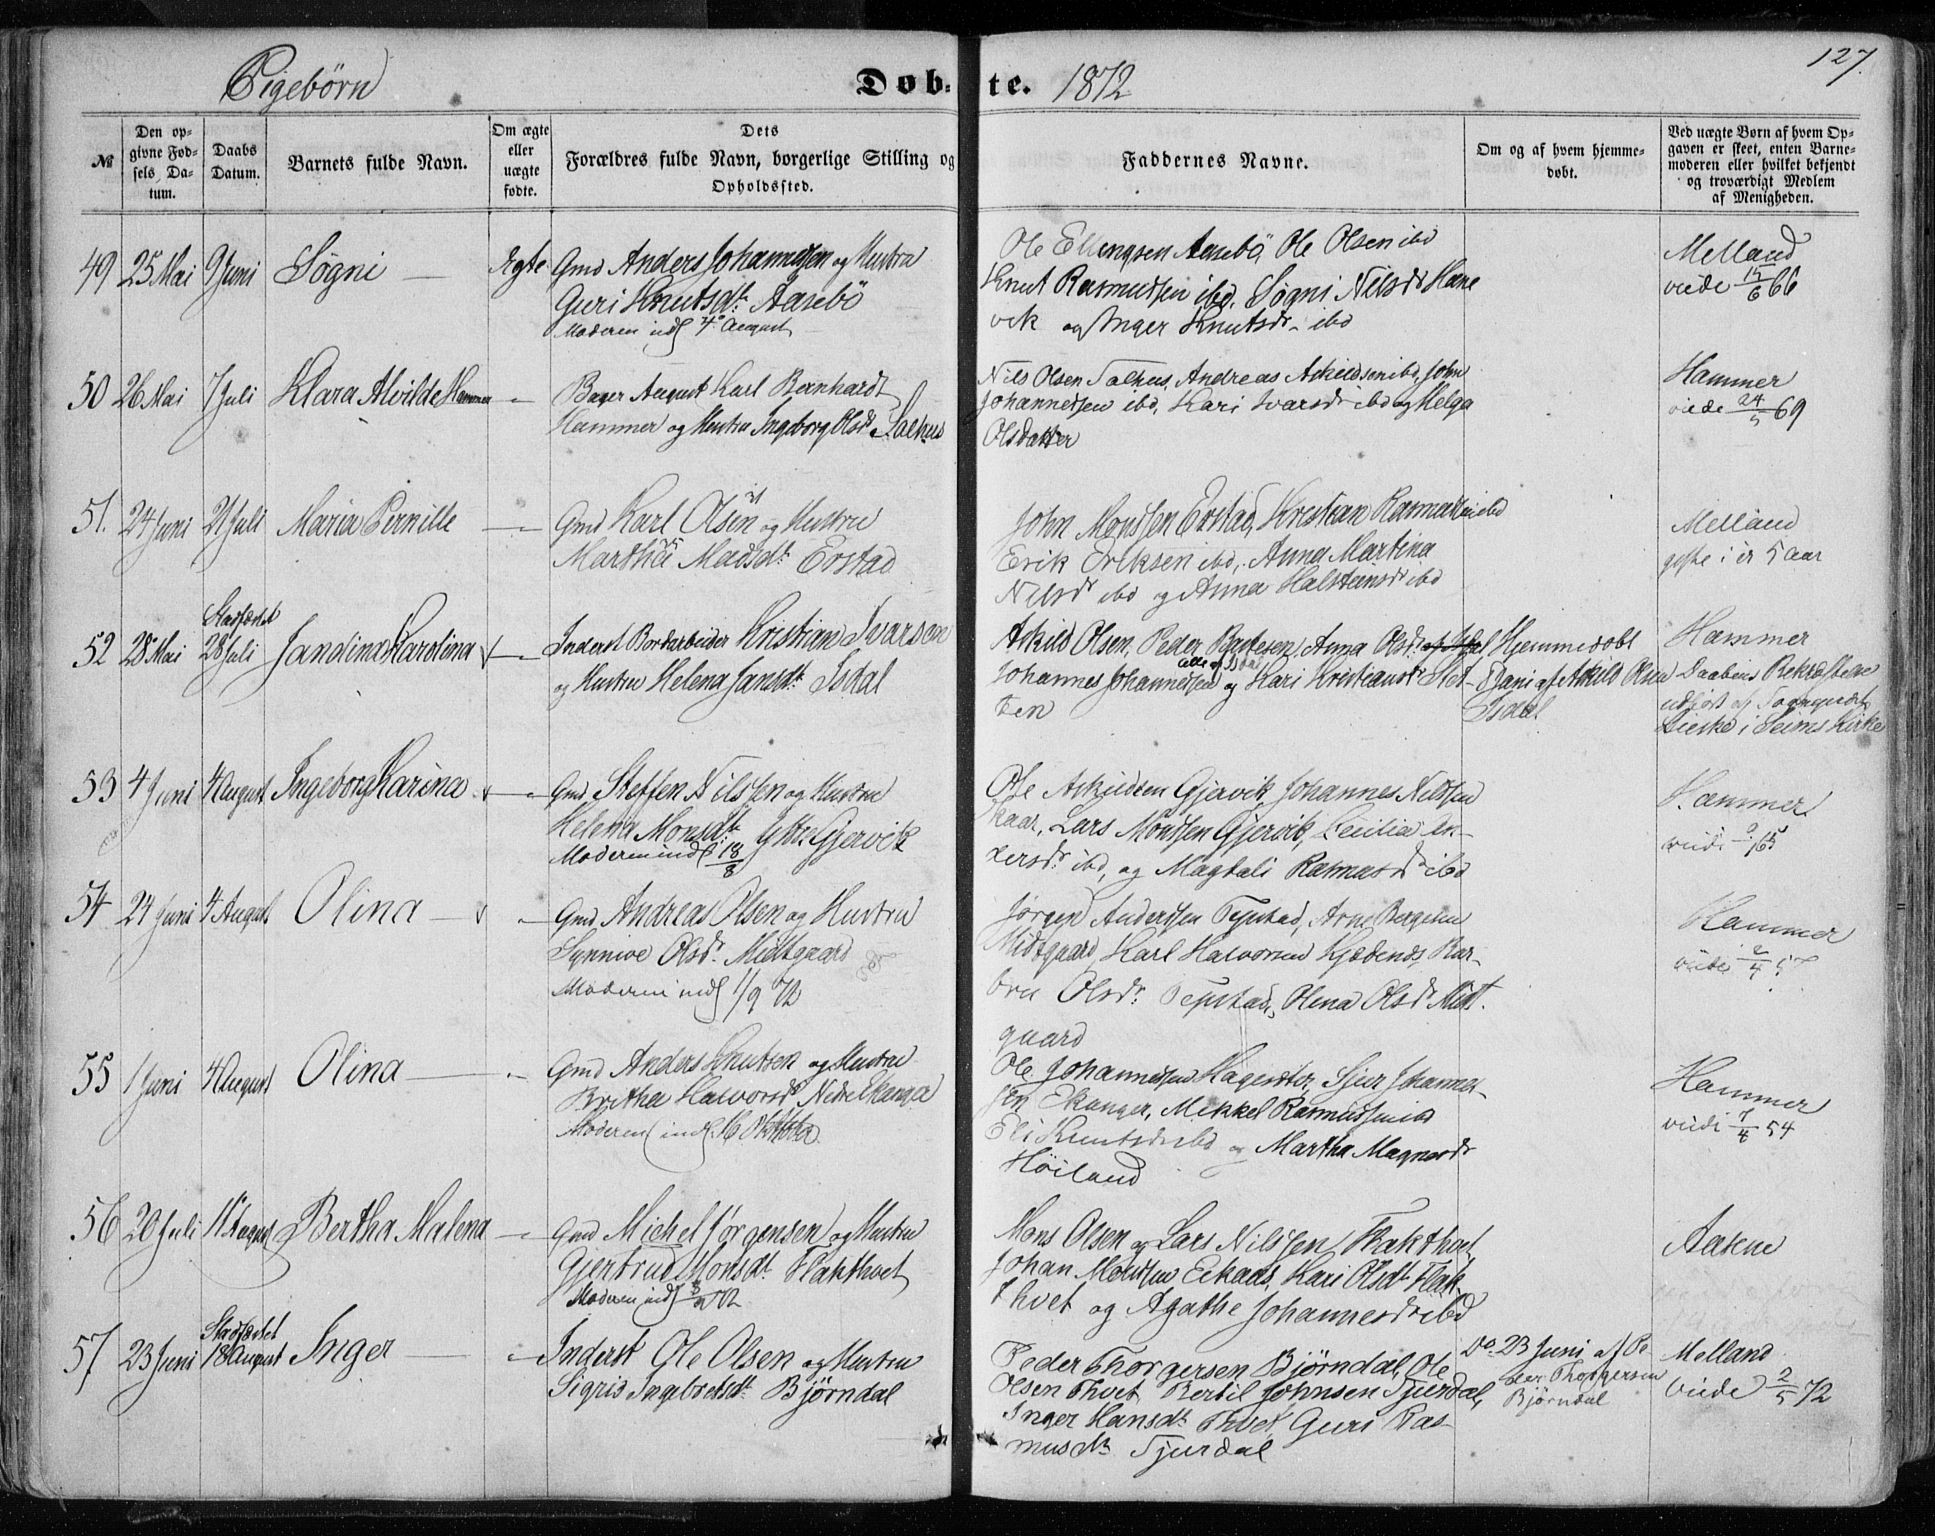 127.
Pigebørn
Døb- te. 1872
№
Den op-
givne Fød-
sels Da-
tum.
Daabs
Datum.
Barnets fulde Navn.
Om ægte
eller
uægte
fødte.
Dets
Forældres fulde Navn, borgerlige Stilling og
Opholdssted.
Faddernes Navne.
Om og af hvem hjemme-
døbt.
Ved uægte Børn af hvem Op-
gaven er skeet, enten Barne-
moderen eller hvilket bekjendt
og troværdigt Medlem
af Menigheden.
49 25 Mai 9 Juni Søgni — Ægte Gmd Anders Johannessen og Hustru
Guri Knutsdt. Aasebö
Moderen indl 4 August
Ole Ellingsen Aasebö, Ole Olsen ibd
Knut Rasmussen ibd, Søgni Nilsdr Hane
vik og Inger Knutsdr ibd
Melland
viede 15/6 66
50 26 Mai 7 Juli Klara Alvilde Hammer — Bager August Karl Bernhardt
Hammer og Hustru Ingeborg Olsdr Salhus
Nils Olsen Salhus, Andreas Askildsen ibd, John
Johannessen ibd, Kari Ivarsdr ibd og Helga
Olsdatter
Hammer
viede 24/5 69
51. 24 Juni 21 Juli Maria Pernille — Gmd Karl Olsen og Hustru
Martha Madsdt. Evstad
John Monssen Evstad, Kristian Rasmussen ibd
Erik Eriksen ibd, Anna Martina
Nilsdr ibd og Anna Halsteinsdr ibd
Melland
gifte i er 5 Aar
52 28 Mai Stadfæstet 28 Juli Jandina Karolina — Inderst Bordarbeider Kristian Ivarsen
og Hustru Helena Jansdt. Isdal
Askild Olsen, Peder Pedersen, Anna Olsdr
alle af Isdal
Johannes Johannessen og Kari Kristiansdr Slet-
ten
Hjemmedøbt
af Askild Olsen
Isdal
Hammer
Daabens Bekræftelse
udført af Sogneprest
i Seims Kirke
53 4 Juni 4 August Ingeborg Karina — Gmd Steffen Nilssen og Hustru
Helena Monsdt. Ytre Gjervik
Moderen indl 18/8
Ole Askildsen Gjervik, Johannes Nilssen
Skaar, Lars Monssen Gjervik, Cecilia An-
dersdr ibd, og Magtali Rasmusdr ibd
Hammer
54 24 Juni 4 August Olina — Gmd Andreas Olsen og Hustru
Synneve Olsdr. Midtgaard
Moderen indl 1/9 72
Jørgen Anderssen Tepstad, Arne Bergesen
Midtgaard, Karl Halvorsen Kjædenes, Bar-
bru Olsdr. Tepstad, Olena Olsdr Midt-
gaard
Hammer
viede 2/4 57
55 1 Juni 4 August Olina — Gmd Anders Knutsen og Hustru
Brithe Halvorsdr Nedre Ekanger
Moderen indl. 16 Oktober
Ole Johannessen Hagesæter, Sjur Johannes-
sen Ekanger, Mikkel Rasmussen ibd
Eli Knutsdr ibd og Martha Magnesdr
Høiland
Hammer
viede 7/4 54
56 20 Juli 11 August Bertha Malena — Gmd Michel Jørgensen og Hustru
Gjertrud Monsdt. Flakthvet
Moderen indl
Mons Olsen og Lars Nilssen Flakthvet,
Johan Monssen Eekaas, Kari Olsdt Flak-
thvet og Agathe Johannesdr ibd
Aakne
57 23 Juni Stadfæstet 18 August Inger — Inderst Ole Olsen og Hustru
Sigrid Ingebretsdt. Bjørndal
Peder Thorgersen Bjørndal, Ole
Olsen Thvet, Bertil Johnsen Tjurdal,
Inger Hansdt. Thvet, Guri Ras-
musdtr Tjurdal
Do. 23 Juni af Pe-
der Thorgersen
Bjørndal
Melland
viede 2/5 72